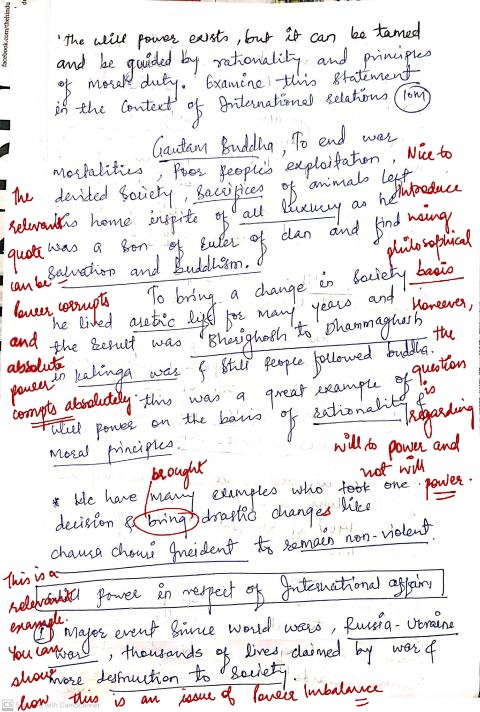 facebook.com/thehindu
'The will power exists, but it can be tamed
and be guided by rationality and principles
of moral duty. Examine this statement
in the context of International relations 10M
Gautam Buddha, To end war
mortalities, Poor People's exploitation,
devided Society, Sacrifices of animals left
his home inspite of all luxury as he
was a son of ruler of clan and find
Salvation and buddhism.
Nice to
introduce
using
philosophical
basis
However,
the
question
is
regarding
will to power and
not will
power.
The
relevant
quote
can be -
Power corrupts
and
absolute
power
corrupts absolutely.
To bring a change in society
he lived asetic life for many years and
the result was Bherighosh to Dhammaghosh
in Kalinga war & still people followed buddha.
this was a great example of
will power on the basis of rationality &
Moral principles.
brought
* We have many examples who took one
decision & bring drastic changes like
chaura chouri Incident to remain non-violent.
This is a
relevant
example.
You can
show
how this is an issue of Power Imbalance
Will Power in respect of International affairs
1 Major event Since world wars, Russia-Ukraine
war, thousands of lives claimed by war &
more destruction to society.
CS Scanned with CamScanner